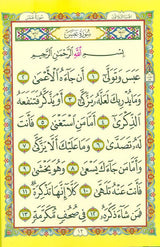 سُورَةُ عَبَسَ
بِسْمِ ٱللَّهِ ٱلرَّحْمَٰنِ ٱلرَّحِيمِ
عَبَسَ وَتَوَلَّىٰ ١ أَن جَاءَهُ ٱلْأَعْمَىٰ ٢
وَمَا يُدْرِيكَ لَعَلَّهُ يَزَّكَّىٰ ٣ أَوْ يَذَّكَّرُ فَتَنفَعَهُ
ٱلذِّكْرَىٰ ٤ أَمَّا مَنِ ٱسْتَغْنَىٰ ٥ فَأَنتَ
لَهُ تَصَدَّىٰ ٦ وَمَا عَلَيْكَ أَلَّا يَزَّكَّىٰ ٧
وَأَمَّا مَن جَاءَكَ يَسْعَىٰ ٨ وَهُوَ يَخْشَىٰ ٩
فَأَنتَ عَنْهُ تَلَهَّىٰ ١٠ كَلَّا إِنَّهَا تَذْكِرَةٌ ١١
فَمَن شَاءَ ذَكَرَهُ ١٢ فِي صُحُفٍ مُّكَرَّمَةٍ ١٣